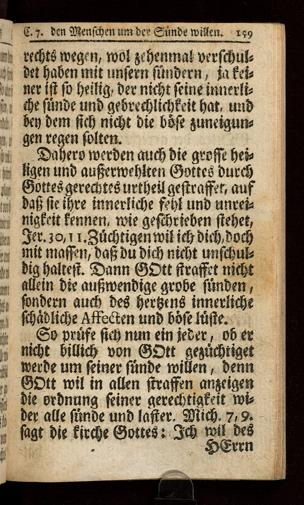 C. 7. den Menschen um der Sünde willen. 159
rechts wegen, wol zehenmal verschul-
det haben mit unsern sündern, ja kei-
ner ist so heilig, der nicht seine innerli-
che sünde und gebrechlichkeit hat, und
bey dem sich nicht die böse zuneigun-
gen regen solten.
Dahero werden auch die grosse hei-
ligen und außerwehlten Gottes durch
Gottes gerechtes urtheil gestraffet, auf
daß sie ihre innerliche fehl und unrei-
nigkeit kennen, wie geschrieben stehet,
Jer. 30, 11. Züchtigen wil ich dich, doch
mit massen, daß du dich nicht unschul-
dig haltest. Dann GOtt straffet nicht
allein die außwendige grobe sünden,
sondern auch des hertzens innerliche
schädliche Affecten und böse lüste.
So prüfe sich nun ein jeder, ob er
nicht billich von GOtt gezüchtiget
werde um seiner sünde willen, denn
GOtt wil in allen straffen anzeigen
die ordnung seiner gerechtigkeit wi-
der alle sünde und laster. Mich. 7, 9.
sagt die kirche Gottes: Ich wil des
HErrn